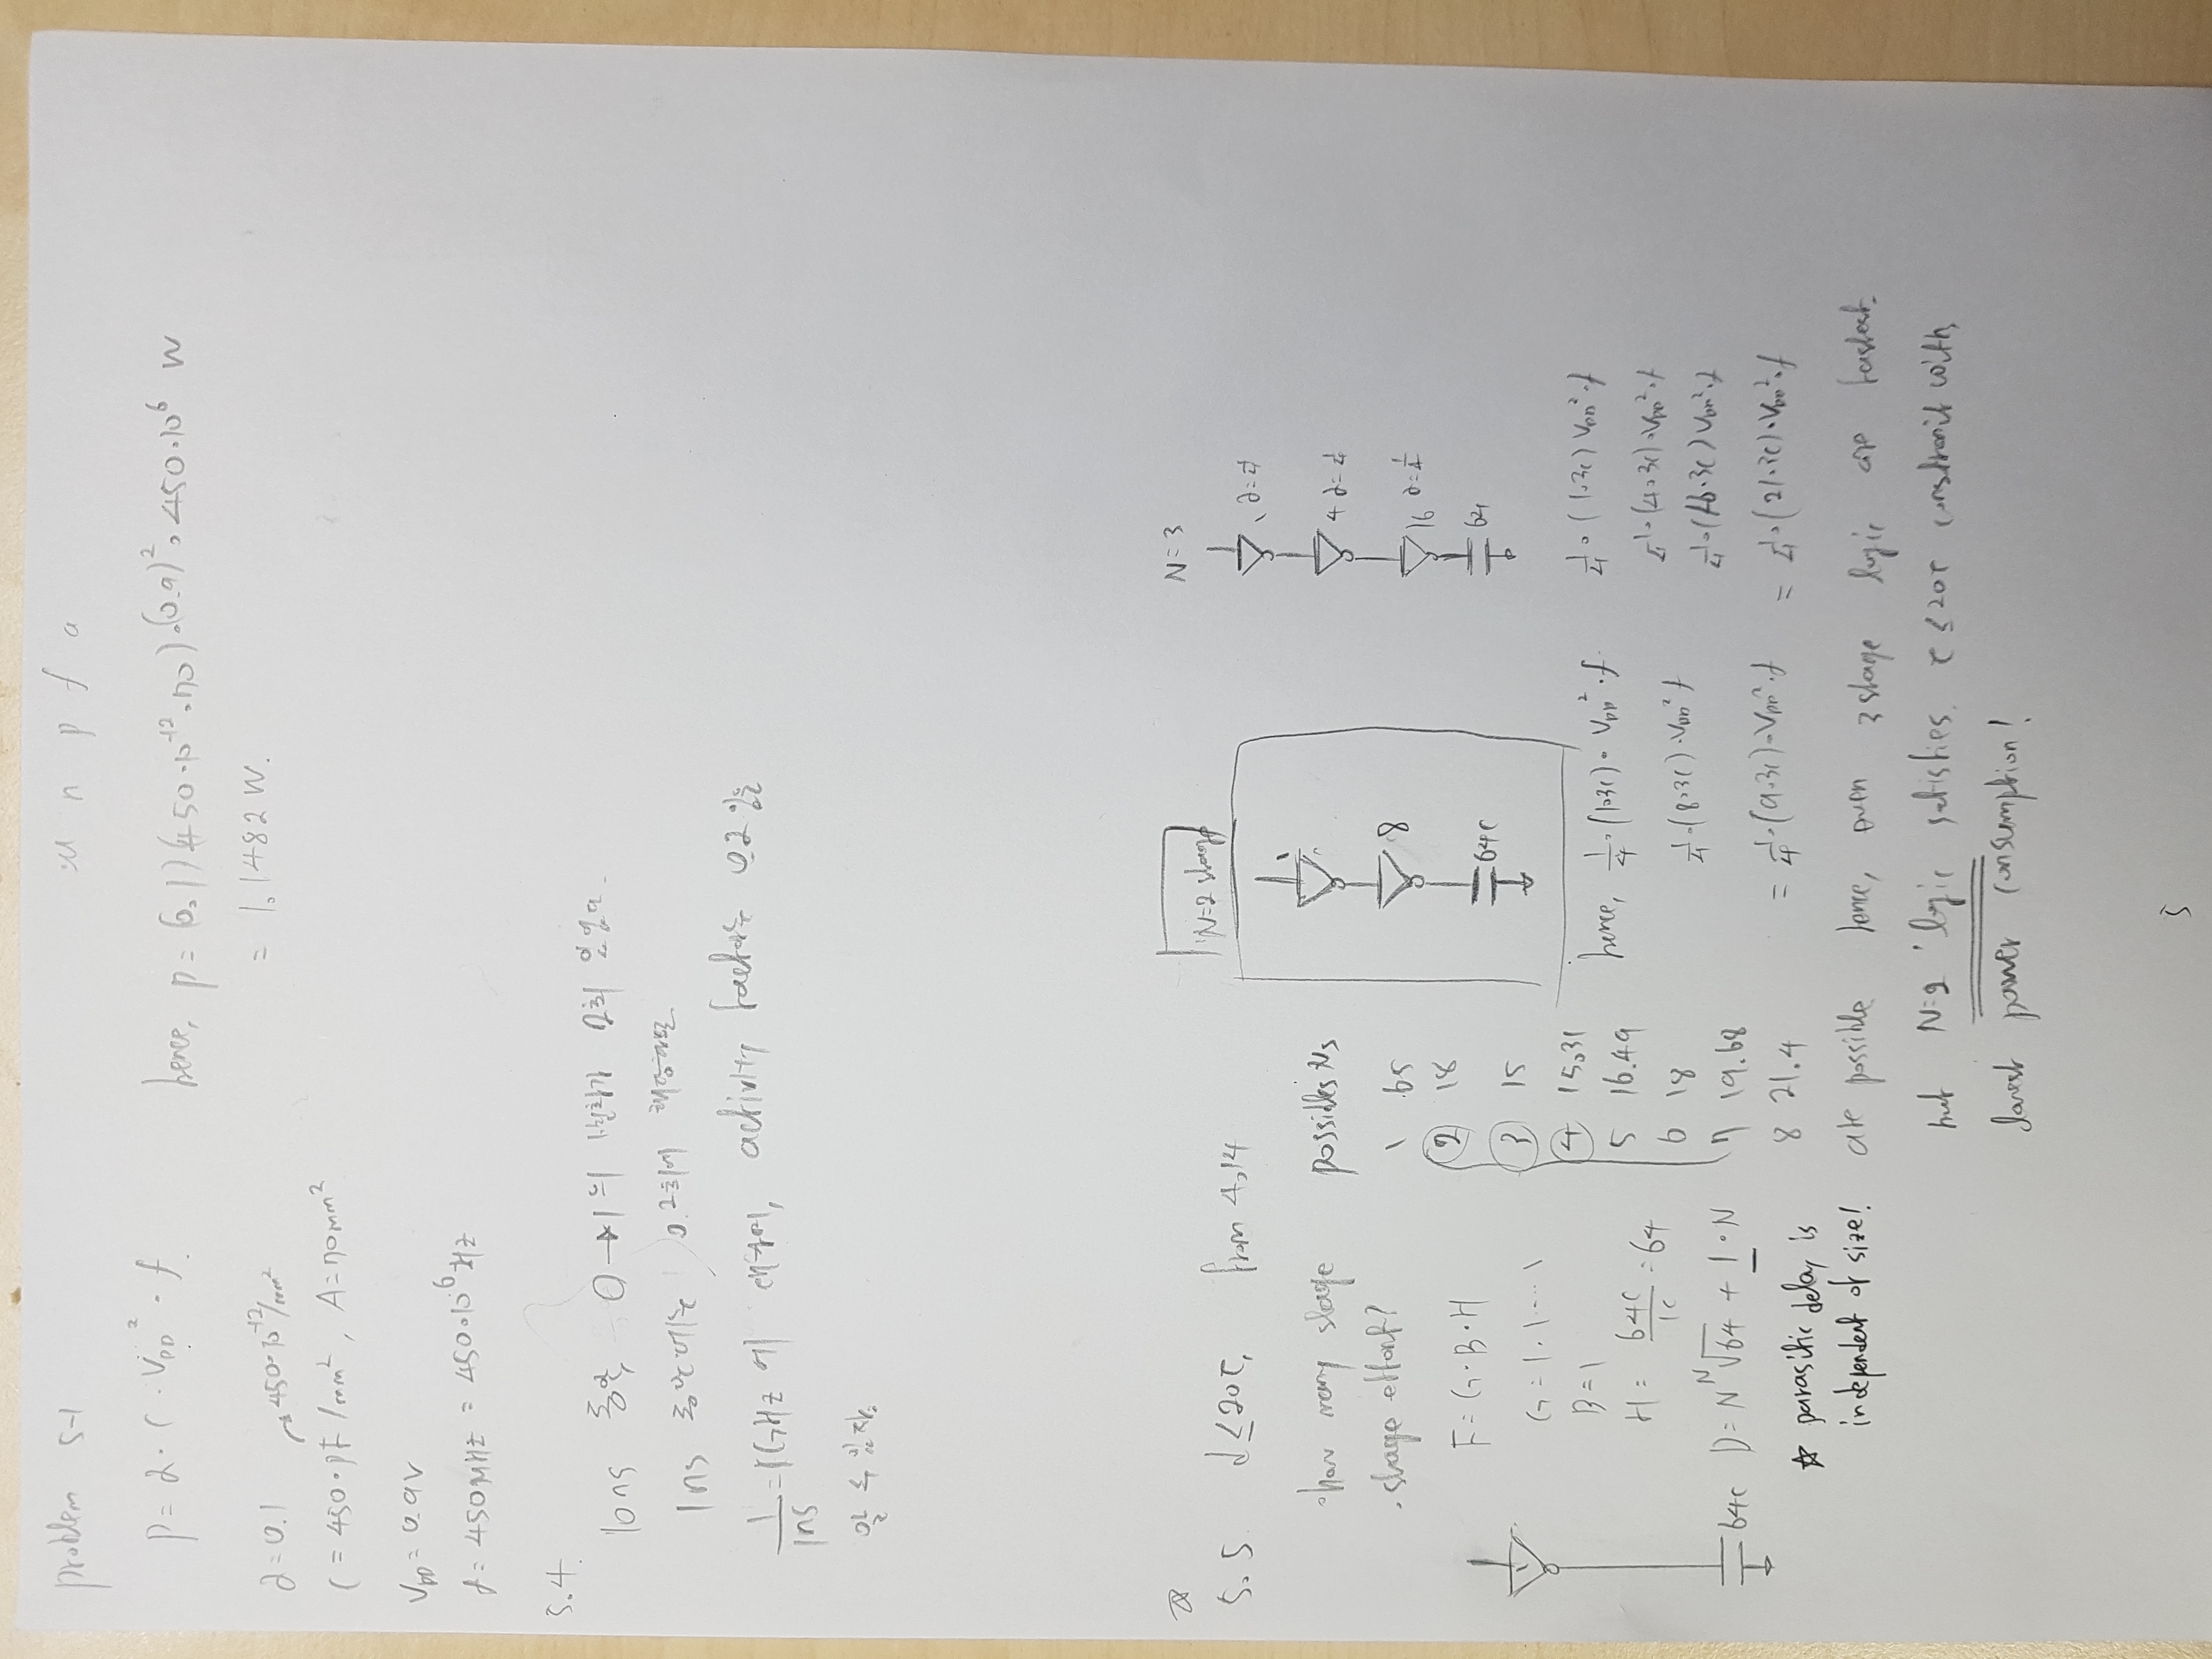 problem 5-1
μ n p f a
P = α · C · V_DD² · f
hence, P = (0.1)(450·10⁻¹²·70)·(0.9)²·450·10⁶ W
= 1.1482 W.
α = 0.1
450·10⁻¹²/mm²
C = 450·pF/mm², A = 70mm²
V_DD = 0.9V
f = 450MHz = 450·10⁶Hz
5.4.
10ns 동안, 0→1의 변화가 2회 있었다.
1ns 동안에는 0.2회에 해당하므로
1/1ns = 1GHz 에 대하여, activity factor는 0.2 임을
알 수 있다.
☆
5.5. d ≤ 20τ, from 4.14
·how many stage
·stage effort?
F = G·B·H
G = 1·1···1
B = 1
H = 64C/1C = 64
1
64C
D = N ᴺ√64 + 1·N
☆ parasitic delay is
independent of size!
possibles Ns
1 65
2 18
3 15
4 15.31
5 16.49
6 18
7 19.68
8 21.4
N=2 stage
1
8
64C
hence, 1/4·(1·3C)·V_DD²·f
1/4·(8·3C)·V_DD²·f
= 1/4·(9·3C)·V_DD²·f
N=3
1 α=1/4
4 α=1/4
16 α=1/4
64
1/4·(1·3C) V_DD²·f
1/4·(4·3C)·V_DD²·f
1/4·(16·3C) V_DD²·f
= 1/4·(21·3C)·V_DD²·f
are possible hence, even 3 stage logic are fastest.
but N=2 logic satisfies τ ≤ 20τ constraint with
lowest power consumption!
5